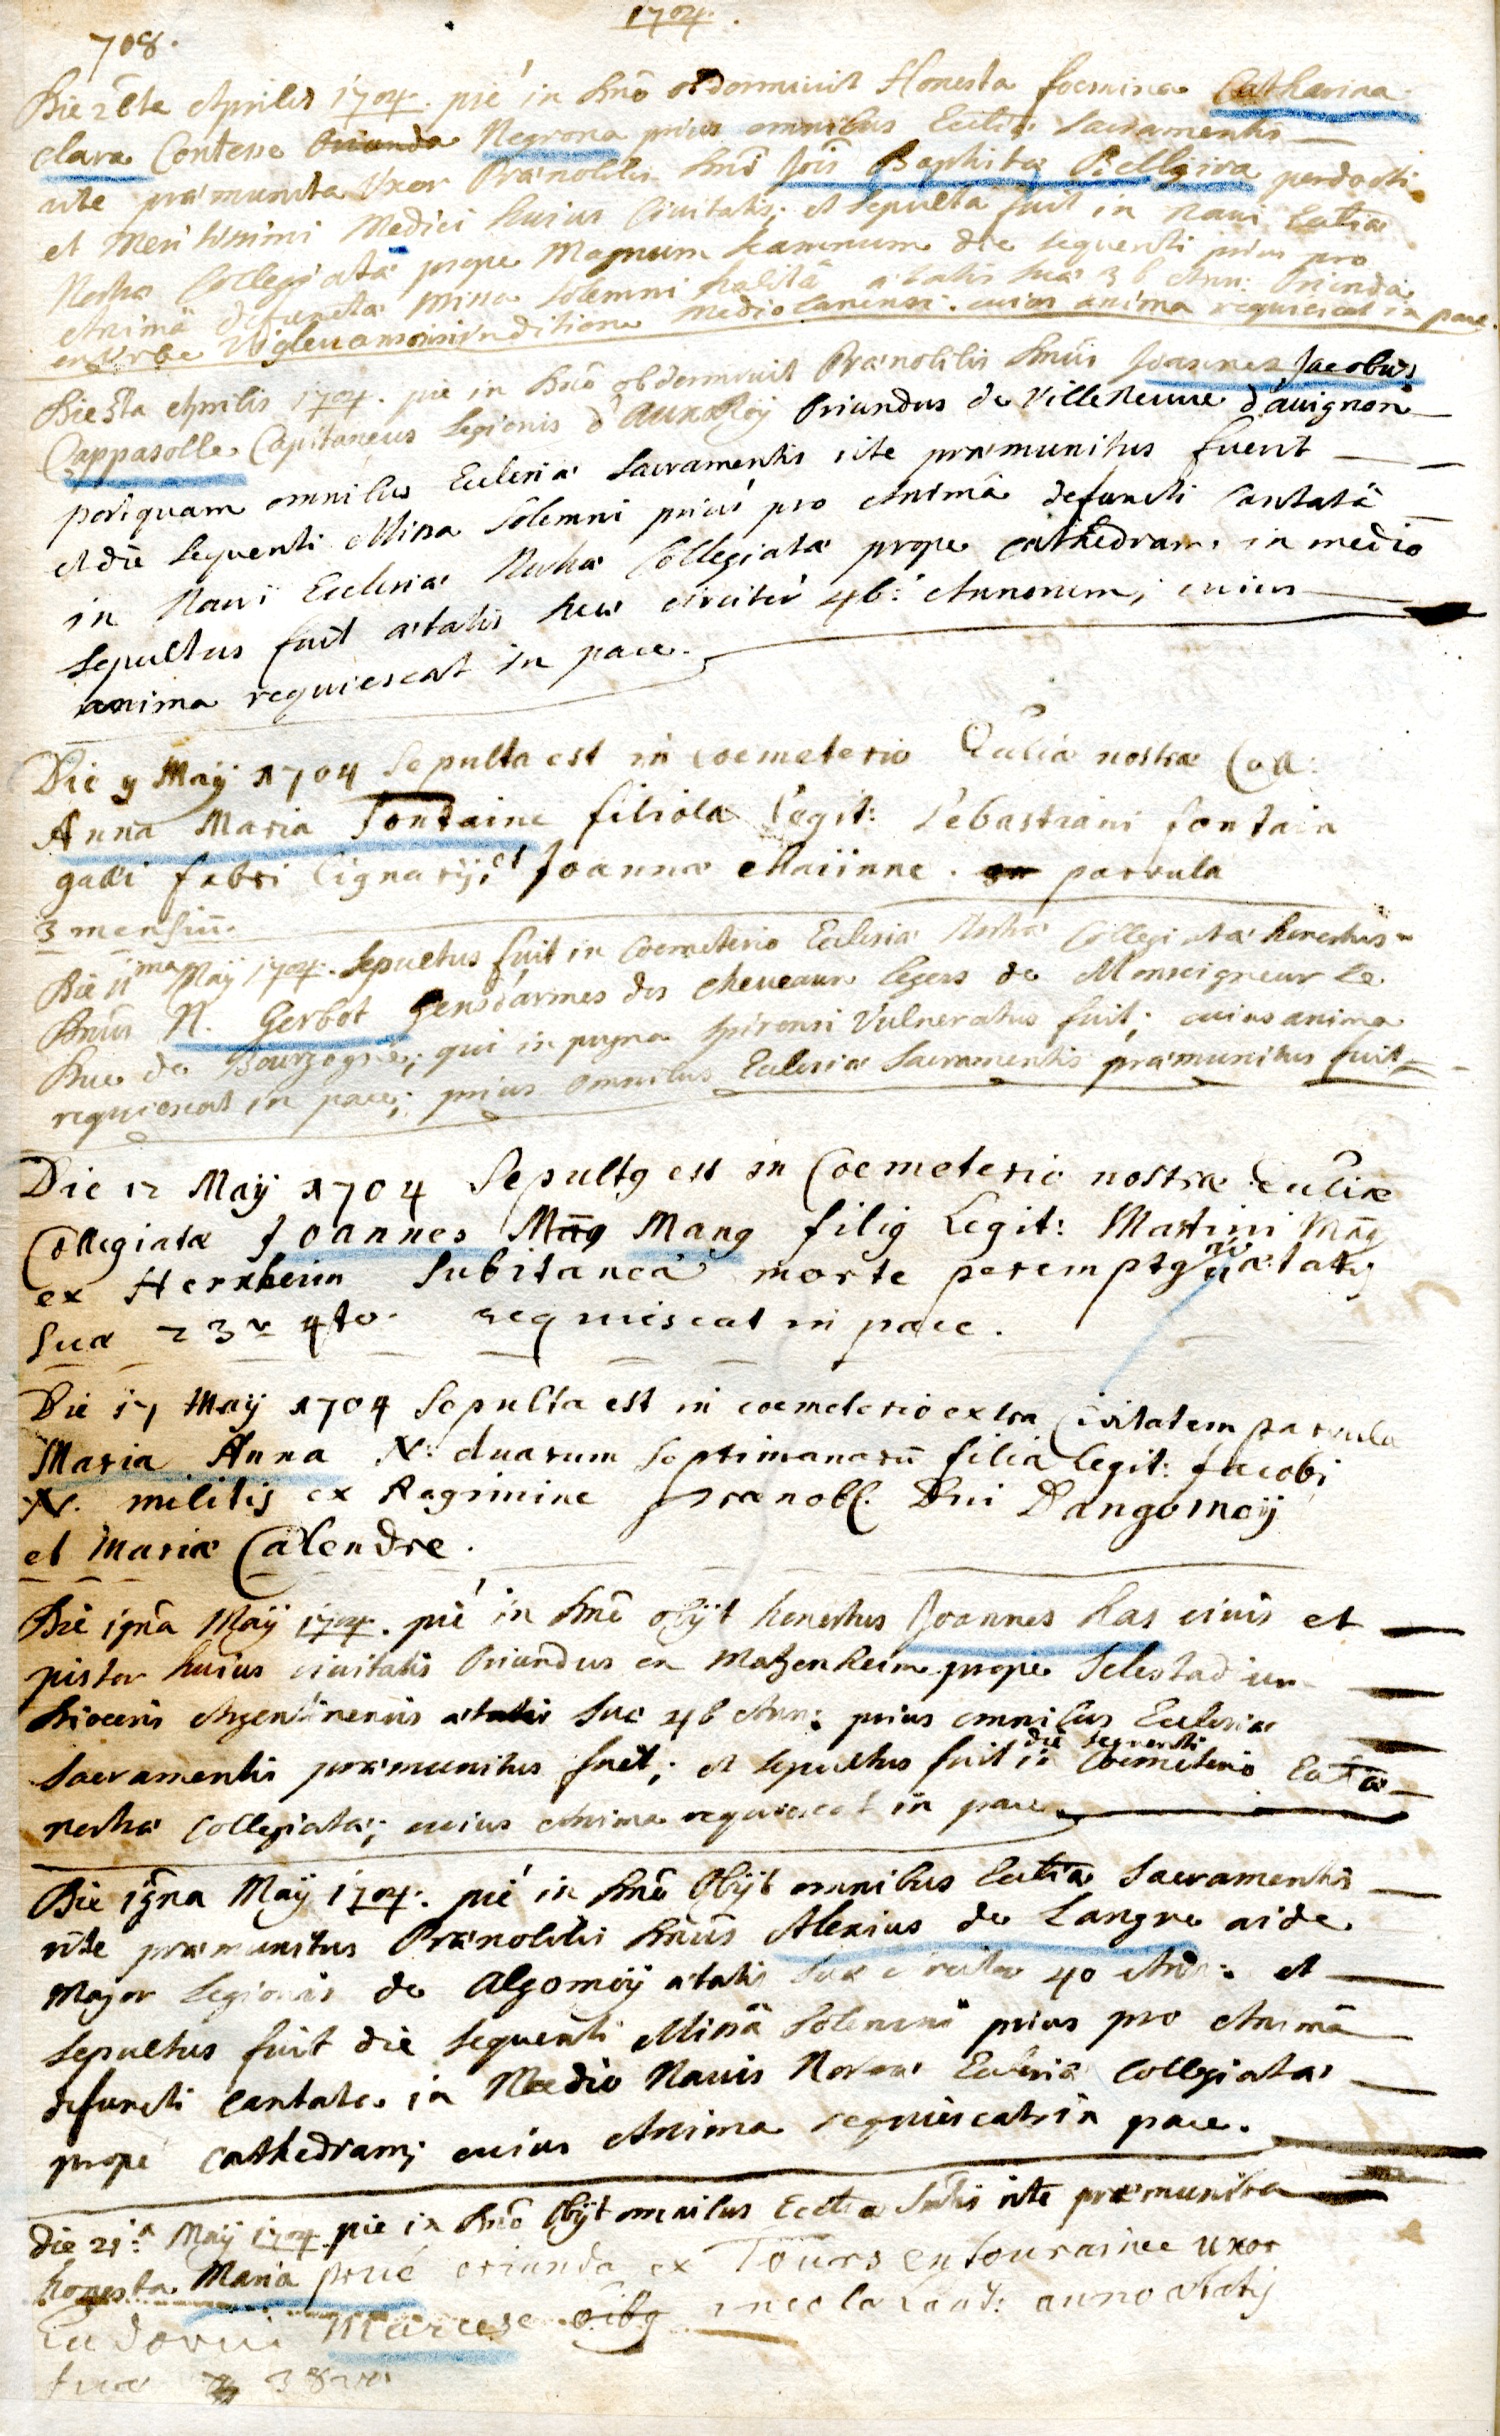 1704.
708.
Die 26ta Aprilis 1704. pié in Dnō obdormivit Honesta foemina Catharina
clara Contesse Oriunda Negrona prius omnibus Eccliæ Sacramentis
rite præmunita Uxor Prænobilis Dni Jois Baptistæ Bellgira perdocti
et meritissimi Medici huius Civitatis; et sepulta fuit in Navi Eccliæ
Nostræ Collegiatæ prope Magnum scamnum die sequenti prius pro
Animâ defunctæ Missa solemni habitâ ætatis suæ 36 Ann: Oriunda
ex Urbe in ditione Mediolanensi. cuius anima requiescat in pace.
Die Aprilis 1704. pie in Dnō obdormivit Prænobilis Dnūs Joannes Jacobus
Cappasolle Capitaneus Legionis d'Auxroÿ Oriundus de Villeneuve d'avignon
postquam omnibus Ecclesiæ Sacramentis rite præmunitus fuerit
et die sequenti Missa Solemni prius pro Animâ defuncti Cantatâ
in Navi Ecclesiæ Nostræ Collegiatæ prope cathedram in medio
Sepultus fuit ætatis suæ circiter 46: Annorum; cuius
anima requiescat in pace.
Die 9 Maÿ 1704 Sepulta est in coemeterio Eccliæ nostræ Coll:
Anna Maria Fontaine filiola Legit: Sebastiani fontain
galli fabri lignarÿ, et Joannæ Maiinne. parvula
3 mensiū.
Die 11ma Maÿ 1704. Sepultus fuit in Coemeterio Ecclesiæ Nostræ Collegiatæ honestus
Dnūs N. Gerbot gensdarmes des cheveaux legers de Monseigneur le
Duc de Bourgogne; qui in pugna Spirensi Vulneratus fuit; cuius anima
requiescat in pace; prius omnibus Ecclesiæ Sacramentis præmunitus fuit
Die 12 Maÿ 1704 Sepultg est in Coemeterio nostræ Eccliæ
Collegiatæ Joannes Mang Mang filig Legit: Martini Māg
ex Herxheim Subitanea morte peremptg ætatis
suæ 23 4to. requiescat in pace.
Die 17 Maÿ 1704 Sepulta est in coemeterio extra Civitatem parvula
Maria Anna N: duarum Septimanarū filia Legit: Jacobi
N. militis ex Regimine prænobl. Dni Dangomoÿ
et Mariæ Calendre.
Die 19na Maÿ 1704. pié in Dnō obÿt honestus Joannes Has civis et
pistor huius civitatis Oriundus ex Matzenheim prope Selestadium
Diocesis Argentinensis ætatis suæ 46 Ann: prius omnibus Ecclesiæ
Sacramentis præmunitus fuit; et sepultus fuit die sequenti in Coemeterio Eccliæ
nostræ Collegiatæ; cuius Anima requiescat in pace
Die 19na Maÿ 1704. pié in Dnō Obÿt omnibus Eccliæ Sacramentis
rite præmunitus Prænobilis Dnūs Alexius de Langre aide
Major Legionis de Algomoÿ ætatis suæ circiter 40 Ann: et
Sepultus fuit die sequenti Missâ Solemni prius pro Animâ
defuncti cantata in Medio Navis Nostræ Ecclesiæ Collegiatæ
prope cathedram; cuius Anima requiescat in pace.
Die 21:a Maÿ 1704. pie in Dnō Obÿt omnibus Eccliæ Sctis rite præmunita
honesta Maria prué oriunda ex Tours en Tourainee uxor
Ludovici Marcese incola Land: anno ætatis
suæ 38